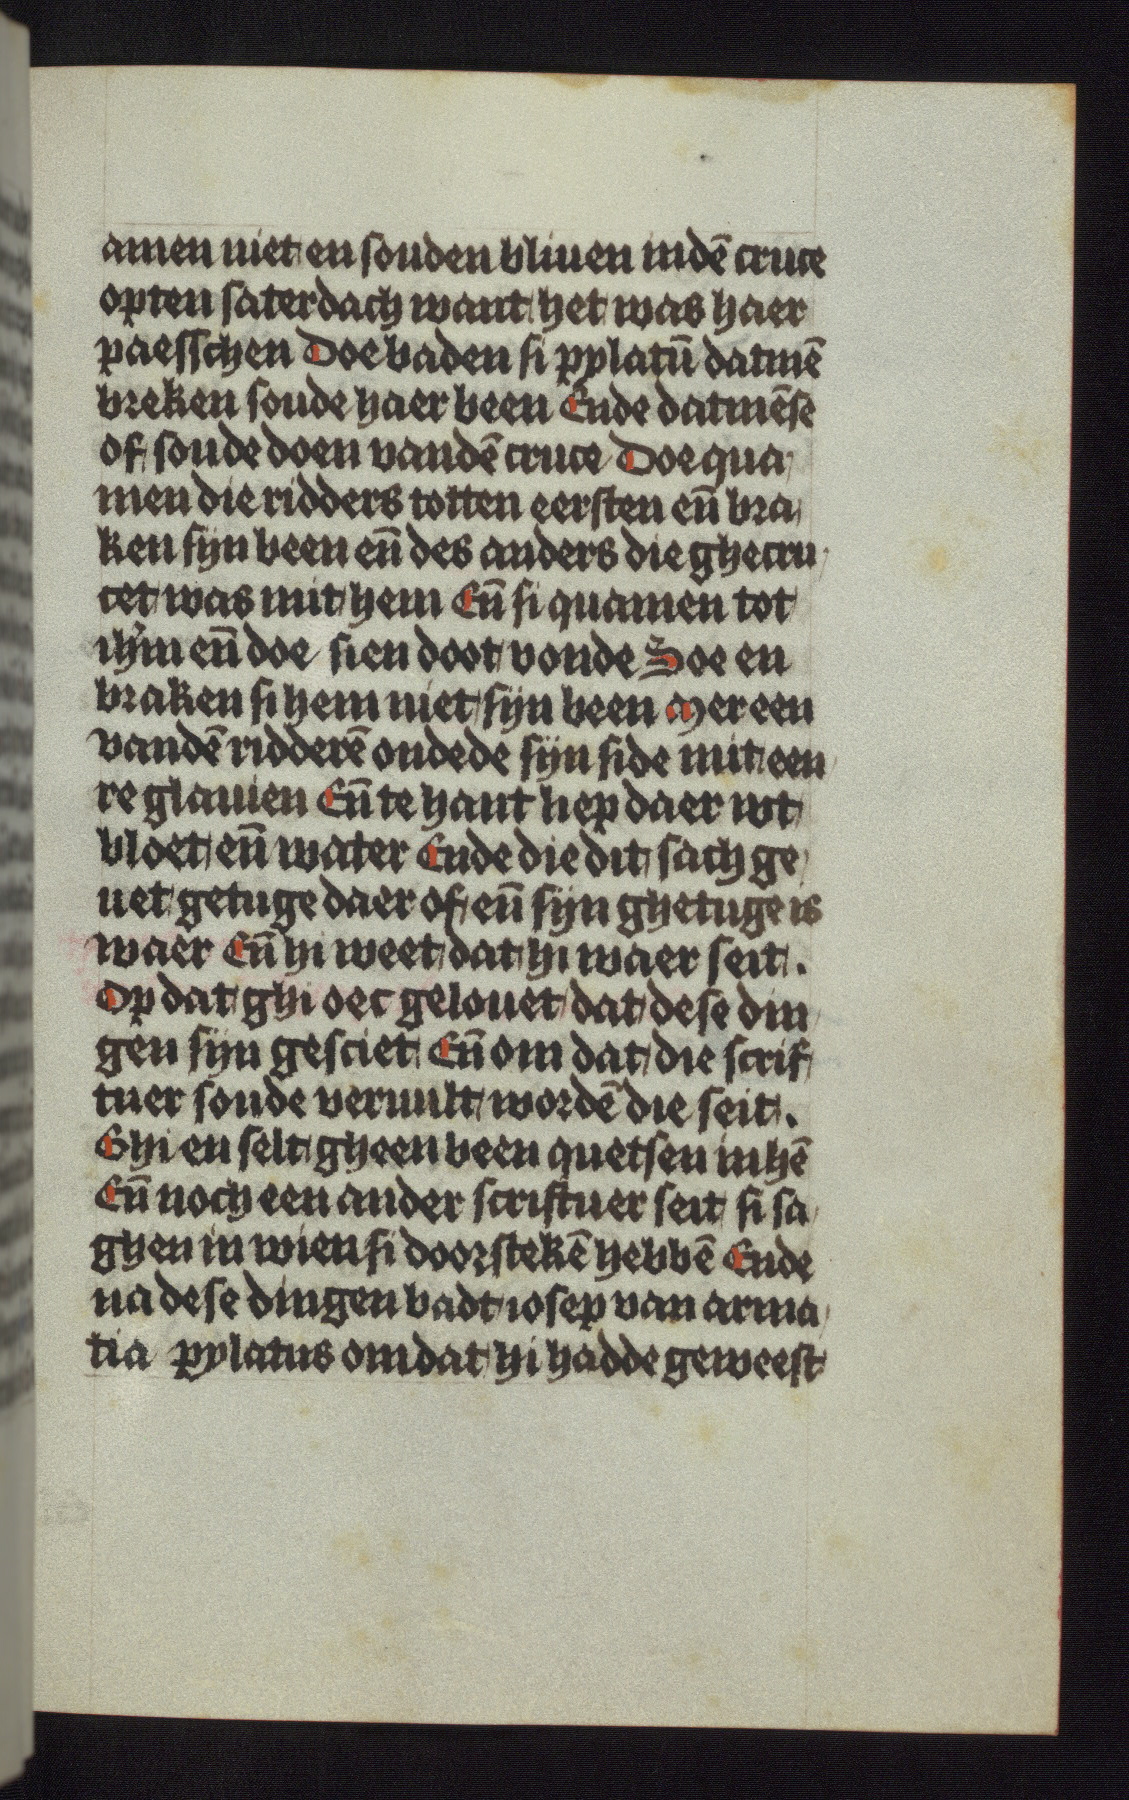 amen niet en souden bliuen indē cruce
opten saterdach want het was haer
paesschen Doe baden si pylatū datmē
breken soude haer been Ende datmēse
of soude doen vandē cruce Doe qua
men die ridders totten eersten eñ bra
ken sijn been eñ des anders die ghecru
cet was mit hem Eñ si quamen tot
ihm eñ doe sien doot vonde Soe en
braken si hem niet sijn been Mer een
vandē ridderē ondede sijn side mit een
re glauien Eñ te hant liep daer wt
bloet eñ water Ende die dit sach ge
uet getuge daer of eñ sijn ghetuge is
waer Eñ hi weet dat hi waer seit.
Op dat ghi oec gelouet dat dese din
gen sijn gesciet Eñ om dat die scrif
tuer soude veruult wordē die seit.
Ghi en selt gheen been quetsen in hē
Eñ noch een ander scriftuer seit si sa
ghen in wien si doorstekē hebbē Ende
na dese dingen badt iosep van arma
tia pylatus om dat hi hadde geweest